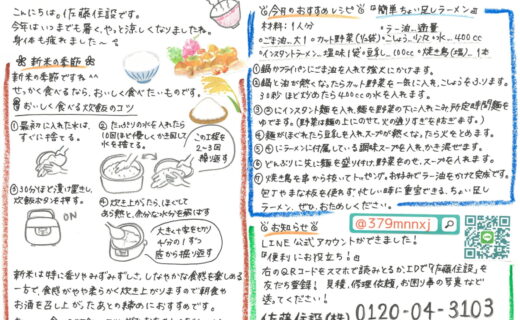 こんにちは。佐藤住設です。
今年はいつまでも暑く、やっと涼しくなりましたね。
身体も疲れました〜
新米の季節
新米の季節ですね^^
せっかく食べるなら、おいしく食べたいものです。
おいしく食べる炊飯のコツ
①最初に入れた水は、
すぐに捨てる。
②たっぷりの水を入れたら
10回ほど優しくかき回して
水を捨てる。
この工程を
2〜3回
繰り返す
③30分ほど漬け置きし、
炊飯ボタンを押す。
ON
④炊き上がったら、ほぐして
あら熱と、余分な水分を飛ばす
大きく十字を切り
4分の1ずつ
底から掘り返す
新米は特に香りやみずみずしさ、しなやかな食感を楽しめる
一方で、食感がやや柔らかく炊き上がりますので朝食や
お酒を召し上がったあとの締めにおすすめです。
今月のおすすめレシピ
『簡単ちょい足しラーメン』
材料：1人分
・ラー油…適量
・ごま油…大1・カット野菜(½袋)・こしょう…少々・水…400cc
・インスタントラーメン(塩味)1袋・豆乳…100cc・焼き鳥(塩)…1本
①鍋かフライパンにごま油を入れて強火にかけます。
②鍋と油が熱くなったらカット野菜を一気に入れ、こしょうをふります。
30秒ほど炒めたら400ccの水を入れます。
③②にインスタント麺を入れ、麺を野菜の下に入れこみ所定時間麺を
ゆでます。(野菜は麺の上にのせて、火の通りすぎを防ぎます。)
④麺がほぐれたら豆乳を入れ、スープが熱くなったら火をとめます。
⑤④にラーメンに付属している調味スープを入れ、かき混ぜます。
⑥どんぶりに先に麺を盛り付け、野菜をのせ、スープを入れます。
⑦焼き鳥を串から抜いてトッピング。お好みでラー油をかけて完成です。
包丁やまな板を使わず、忙しい時に重宝できる、ちょい足し
ラーメン。ぜひ、おためしください。
@379mnnxj
お知らせ
LINE公式アカウントができました！
便利にお役立ち！
右のQRコードをスマホで読みとるか、IDで「佐藤住設」を
友だち登録！見積、修理依頼、お困り事の写真など
送ってください！
佐藤住設(株) 0120-04-3103